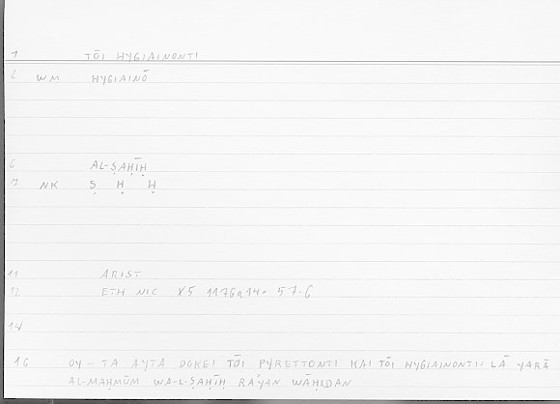 1 TŌI HYGIAINONTI
2 WM HYGIAINŌ
6 AL-ṢAḤĪḤ
7 NK Ṣ Ḥ Ḥ
11 ARIST
12 ETH NIC X5 1176a14= 57.6
14
16 OY – TA AYTA DOKEI TŌI PYRETTONTI KAI TŌI HYGIAINONTI: LĀ YARĀ
AL-MAḤMŪM WA-L-ṢAḤĪḤ RA'YAN WĀḤIDAN